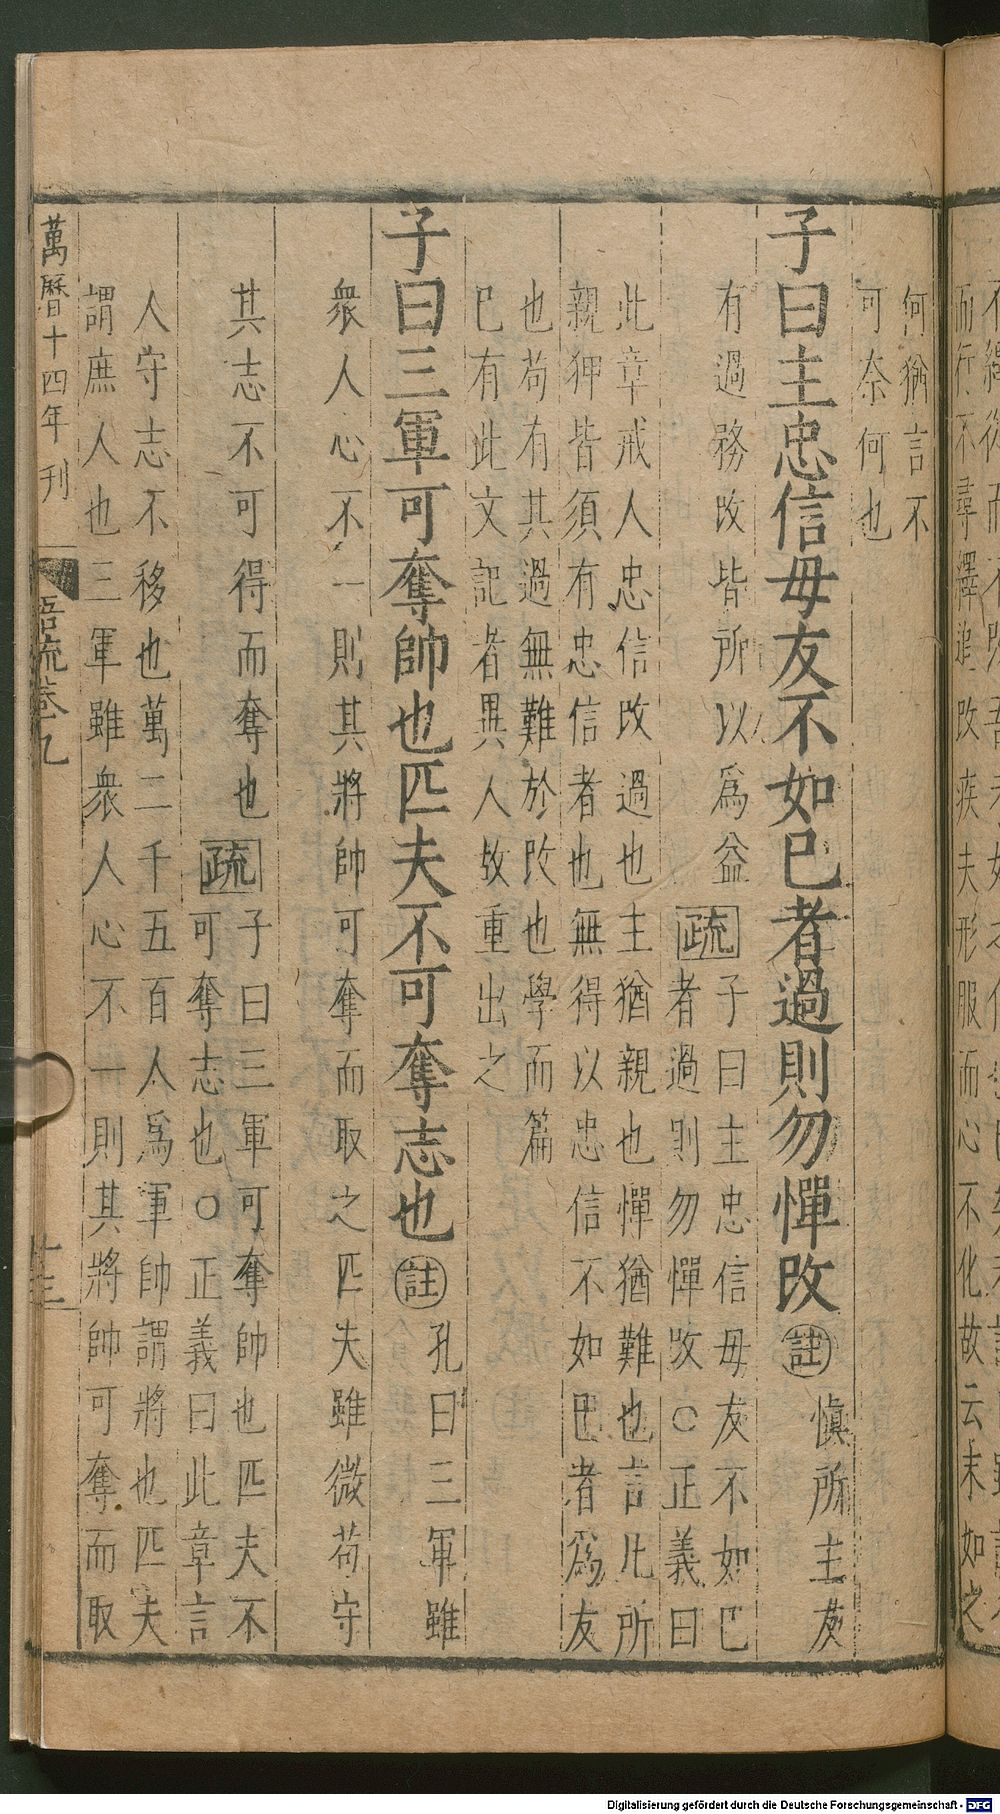 而行不尋繹追改疾夫形服而心不化故云末如之
何猶言不
可奈何也
子曰主忠信毋友不如已者過則勿憚改 註 慎所主友
有過務改皆所以爲益 疏 子曰主忠信毋友不如已
者過則勿憚改○正義曰
此章戒人忠信改過也主猶親也憚猶難也言凡所
親狎皆須有忠信者也無得以忠信不如已者爲友
也苟有其過無難於改也學而篇
已有此文記者異人故重出之
子曰三軍可奪帥也匹夫不可奪志也 註 孔曰三軍雖
衆人心不一則其將帥可奪而取之匹夫雖微苟守
其志不可得而奪也 疏 子曰三軍可奪帥也匹夫不
可奪志也○正義曰此章言
人守志不移也萬二千五百人爲軍帥謂將也匹夫
謂庶人也三軍雖衆人心不一則其將帥可奪而取
萬曆十四年刊 語疏卷九
Digitalisierung gefördert durch die Deutsche Forschungsgemeinschaft - DFG